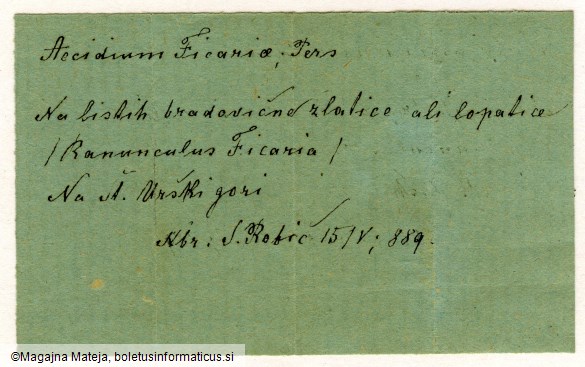 Aecidium Ficariæ, Pers
Na listih bradovične zlatice ali lopatice
/Ranunculus Ficaria/
Na št. Urški gori
Nbr. S. Robič 15/V; 889.
©Magajna Mateja, boletusinformaticus.si